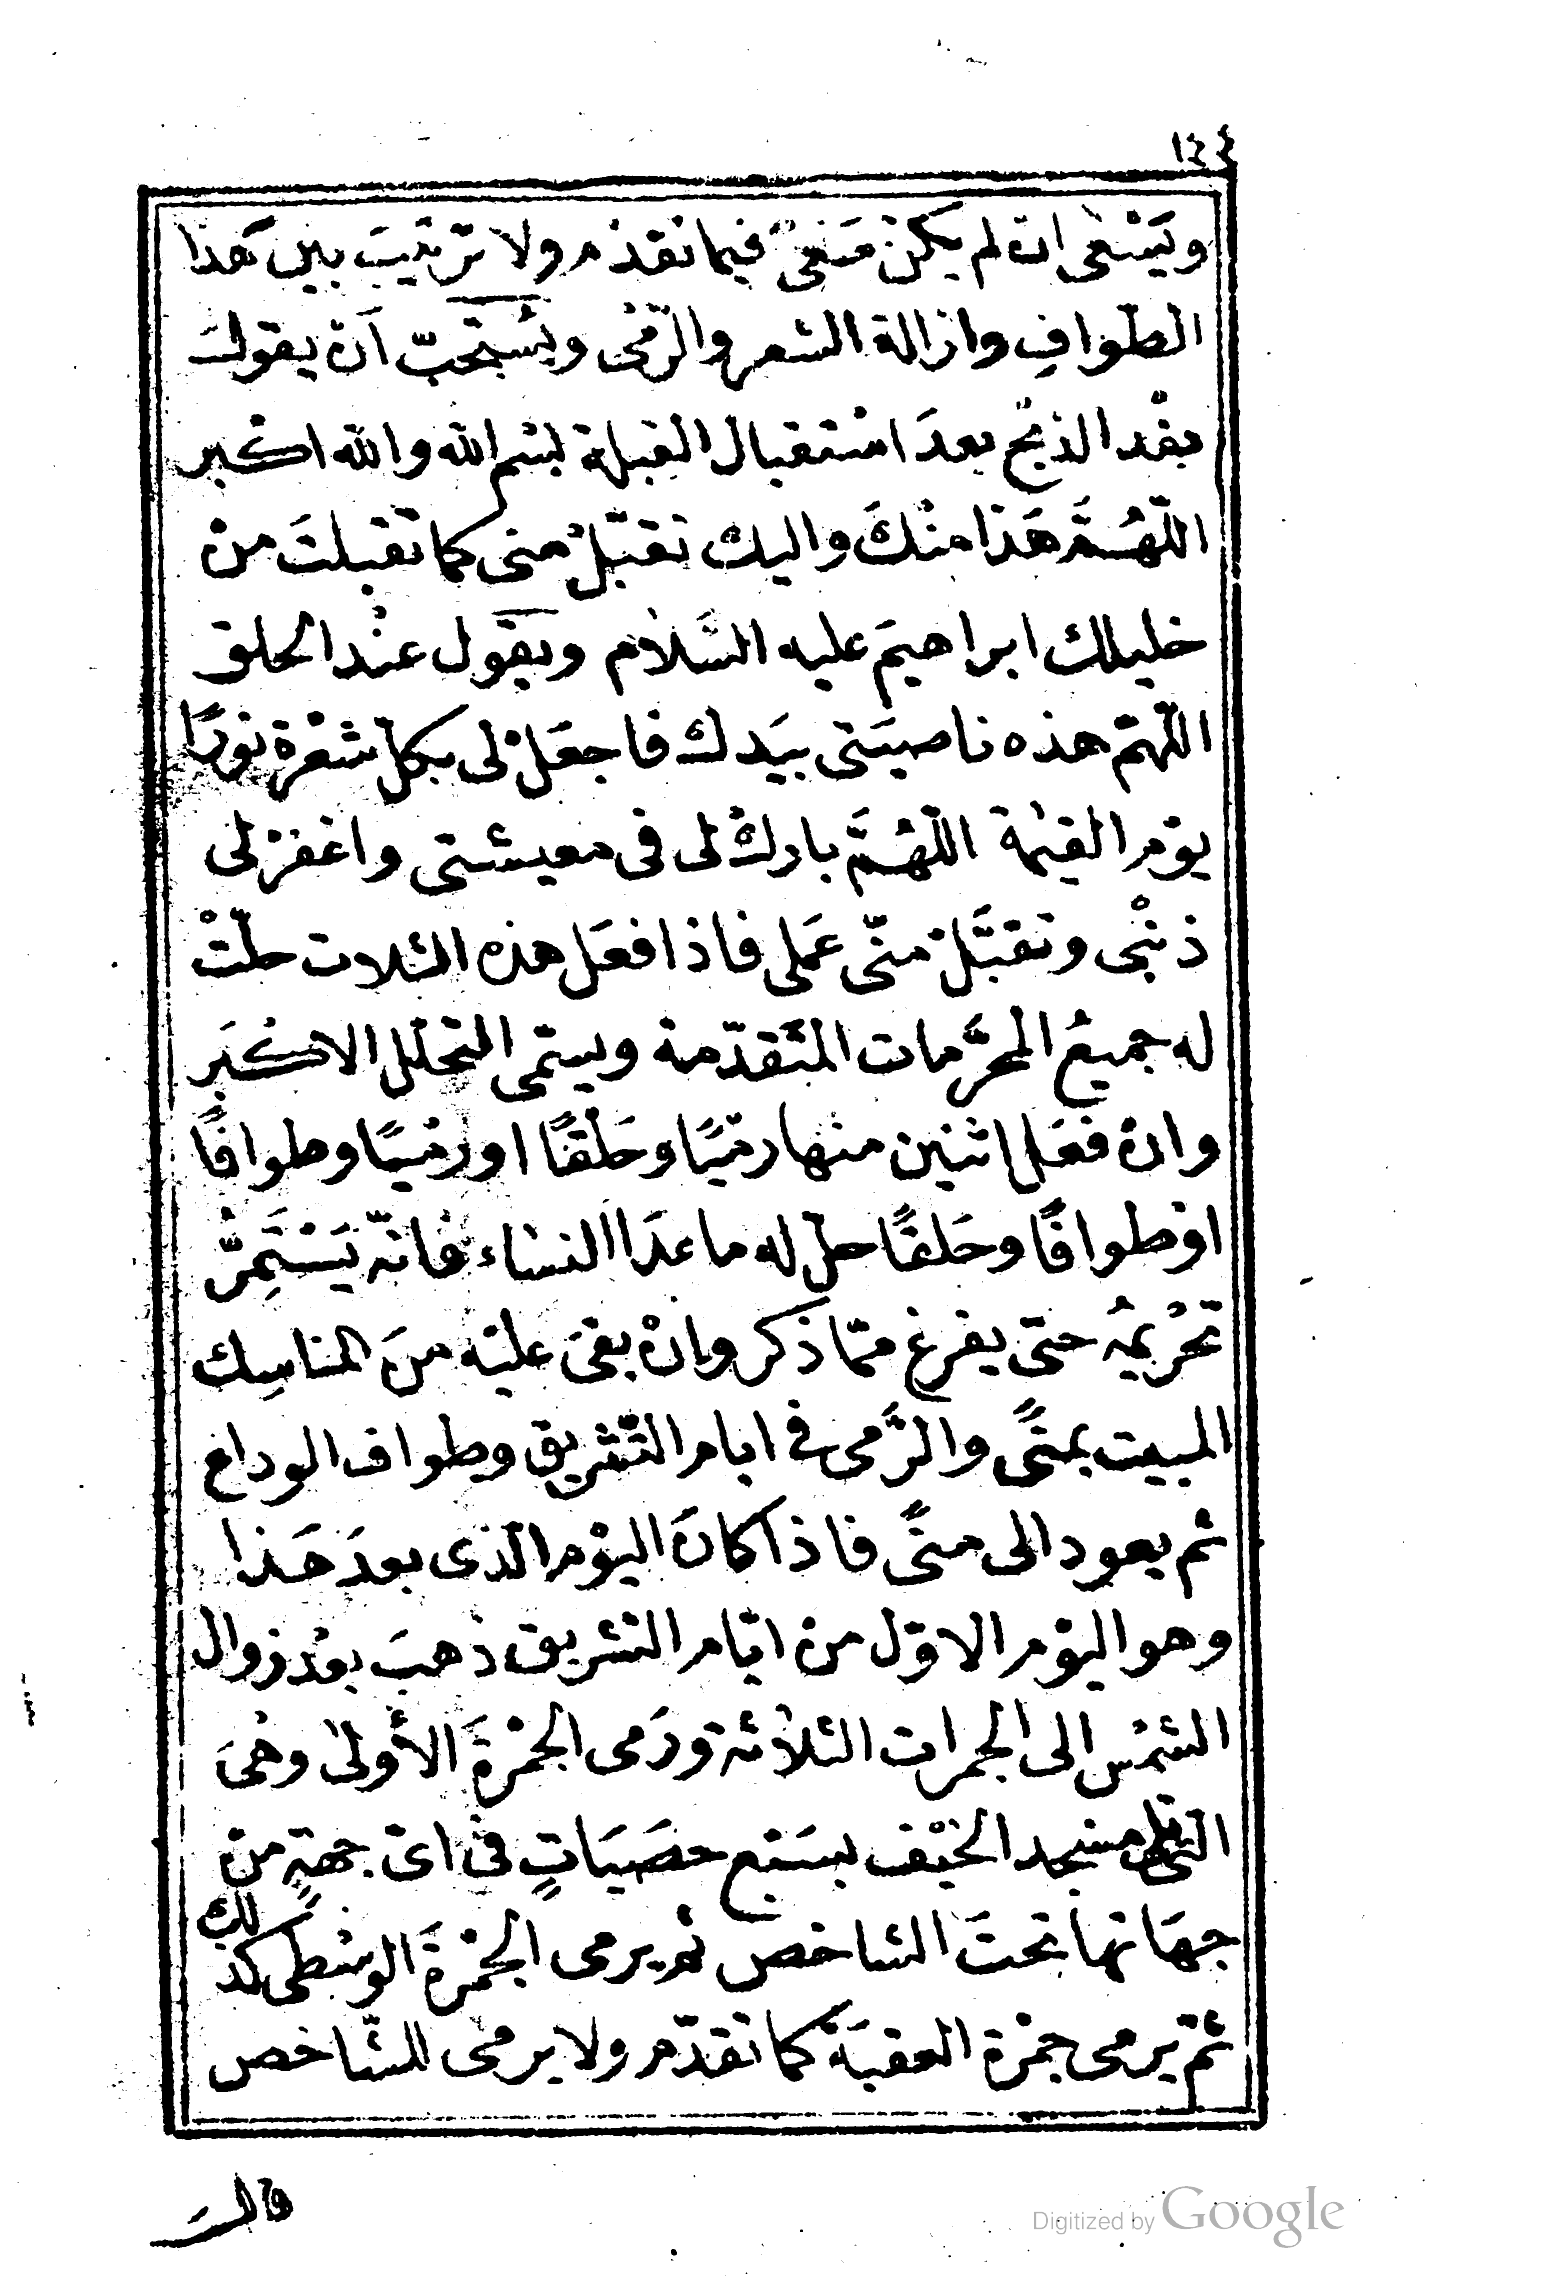 ١٤٤
ويَسْعَى ان لم يكنْ سَعَى فيما تقدم ولا ترتيبَ بين هَذا
الطّوافِ وازالة الشعر والرّمْى ويُسْتَحَبّ اَن يقولَ
بعْد الذبح بعدَ استقبال القبلة بسْم الله والله اكبر
اللّهُمَّ هَذا منْكَ واليك تقبّلْ منى كما تقبلتَ منْ
خليلك ابراهيمَ عليه السَّلام ويقول عنْد الحلق
اللهمّ هذه ناصيَتى بيَدك فاجعَلْ لى بكلّ شعْرة نورًا
يوْم القيٰمة اللّهُمَّ باركْ لى فى معيشتى واغفرْ لى
ذنْبى وتقبَّلْ منّى عَملى فاذا فعَل هذه الثلاث حلّتْ
له جميعُ المحرَّمات المتَقدّمة ويسمّى التحلّل الاكْبَر
وانْ فعَل اثنين منها رمْيًا وحَلْقًا او رمْيًا وطوافًا
اوْ طوافًا وحَلقًا حلّ له ما عدَا النسٰاء فانّه يَسْتَمِرّ
تحْريمُه حتى يفرغ ممّا ذكر وانْ بقىَ عليْه منَ المناسِك
المبيت بمنًى والرَّمى فى ايام التّشْريق وطواف الوداع
ثم يعود الى منًى فاذا كانَ اليوْم الّذى بعدَ هَذا
وهو اليوْم الاوّل منْ ايّام التشريق ذهبَ بعْد زوال
الشمْس الى الجمرات الثلاثة ورَمى الجمْرةَ الأولى وهىَ
التى تلى مسْجد الخيْف بسَبْع حصَيَاتٍ فى اىّ جهةٍ منْ
جهَاتها تحتَ الشاخص ثم يرمى الجمْرةَ الوسْطى كذلك
ثمّ يرمى جمْرة العقبَة كما تقدّم ولا يرمى للشّاخص
قالَ
Digitized by Google